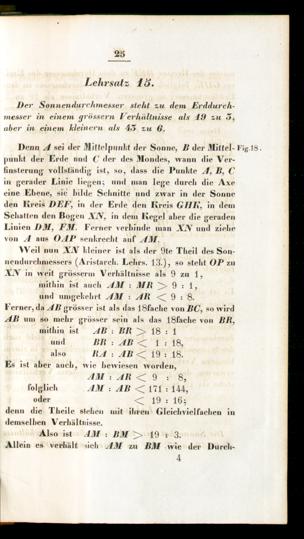 25
Lehrsatz 15.
Der Sonnendurchmesser steht zu dem Erddurch-
messer in einem grössern Verhältnisse als 19 zu 3,
aber in einem kleinern als 43 zu 6.
Denn A sei der Mittelpunkt der Sonne, B der Mittel- Fig.18.
punkt der Erde und C der des Mondes, wann die Ver-
finsterung vollständig ist, so, dass die Punkte A, B, C
in gerader Linie liegen; und man lege durch die Axe
eine Ebene, sie bilde Schnitte und zwar in der Sonne
den Kreis DEF, in der Erde den Kreis GHK, in dem
Schatten den Bogen XN, in dem Kegel aber die geraden
Linien DM, FM. Ferner verbinde man XN und ziehe
von A aus OAP senkrecht auf AM.
Weil nun XN kleiner ist als der 9te Theil des Son-
nendurchmessers (Aristarch. Lehrs. 13.), so steht OP zu
XN in weit grösserm Verhältnisse als 9 zu 1,
mithin ist auch AM : MR > 9 : 1,
und umgekehrt AM : AR < 9 : 8.
Ferner, da AB grösser ist als das 18fache von BC, so wird
AB um so mehr grösser sein als das 18fache von BR,
mithin ist AB : BR > 18 : 1
und BR : AB < 1 : 18,
also RA : AB < 19 : 18.
Es ist aber auch, wie bewiesen worden,
AM : AR < 9 : 8,
folglich AM : AB < 171 : 144,
oder < 19 : 16;
denn die Theile stehen mit ihren Gleichvielfachen in
demselben Verhältnisse.
Also ist AM : BM > 19 : 3.
Allein es verhält sich AM zu BM wie der Durch-
4